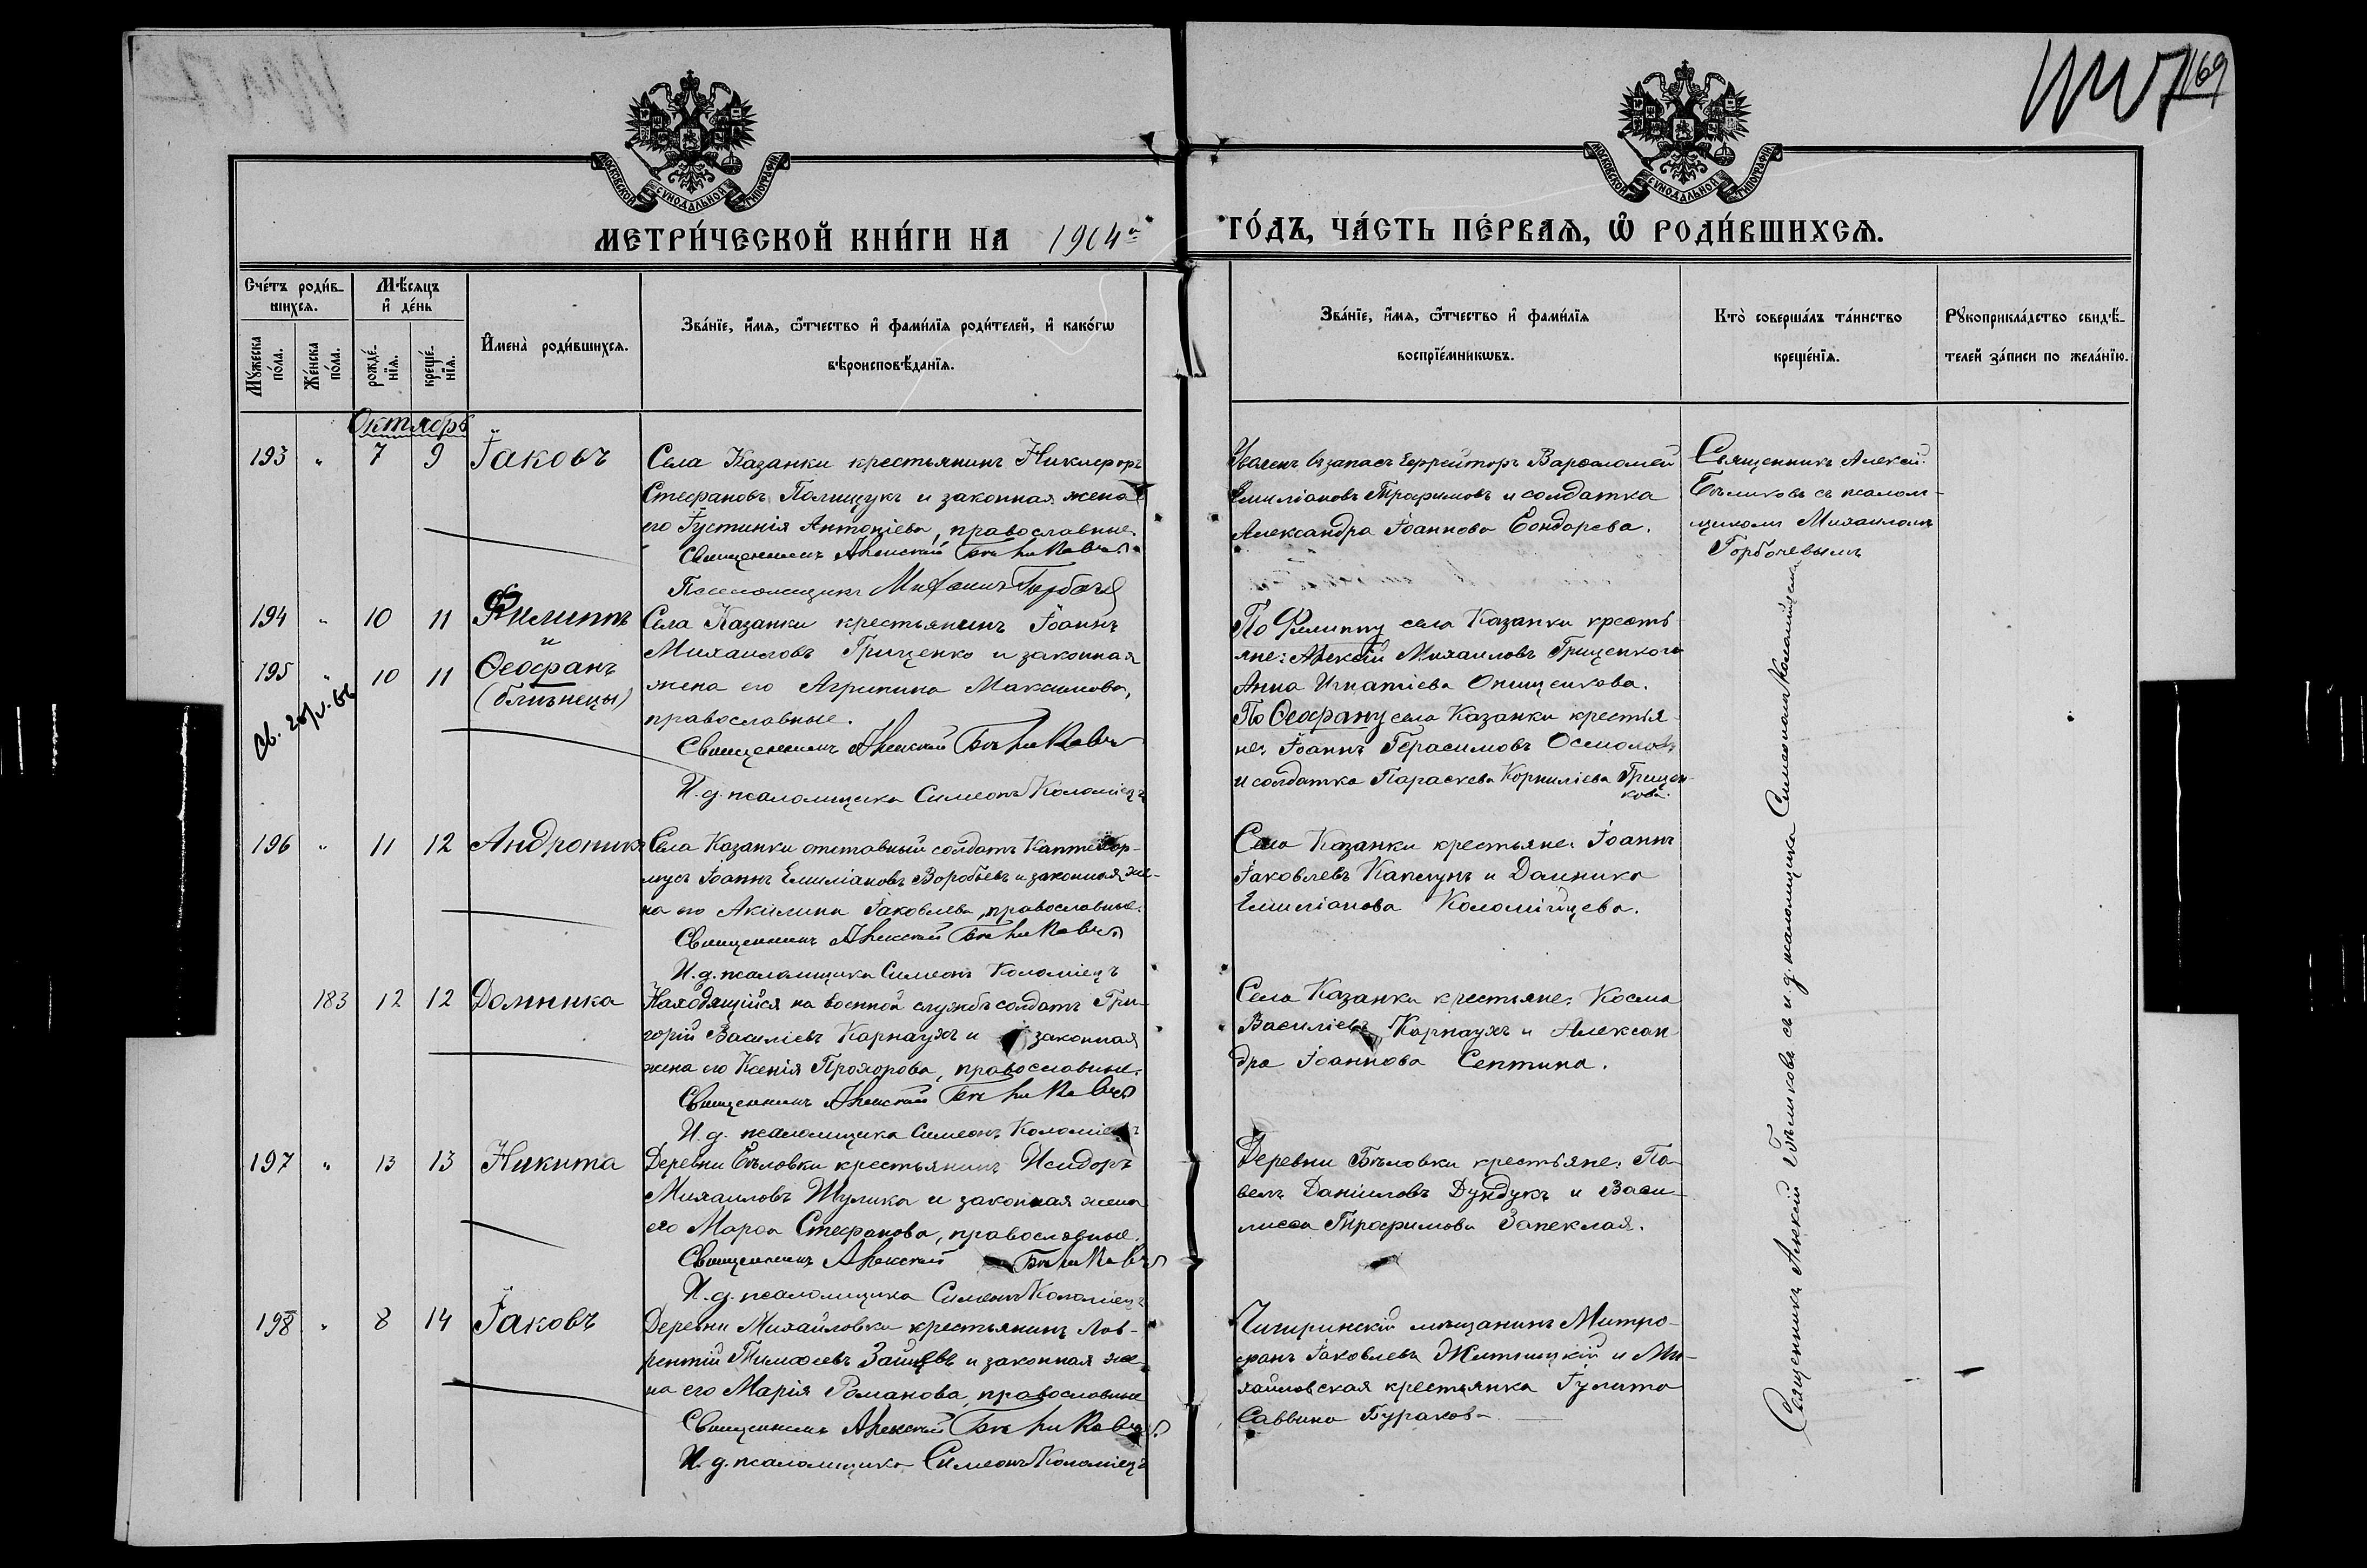 169
МОСКОВСКОЙ СУНОДАЛЬНОЙ ТИПОГРАФІИ
МОСКОВСКОЙ СУНОДАЛЬНОЙ ТИПОГРАФІИ
МЕТРИ́ЧЕСКОЙ КНИ́ГИ НА 1904й
ГО́ДЪ, ЧА́СТЬ ПЕ́РВАѦ, Ѡ РОДИ́ВШИХСѦ.
Сче́тъ роди́в-
шихсѧ.
Мꙋ́жеска по́ла.
Же́нска по́ла.
Мѣ́сяцъ и҆ де́нь
рожде́-нїѧ.
креще́-нїѧ.
И҆мена̀ роди́вшихсѧ.
Зва́нїе, и҆́мѧ, ѻ҆́тчество и҆ фами́лїѧ роди́телей, и҆ како́гѡ
вѣроисповѣ́данїѧ.
Зва́нїе, и҆́мѧ, ѻ҆́тчество и҆ фами́лїѧ
воспрїе́мникѡвъ.
Кто̀ соверша́лъ та́инство
креще́нїѧ.
Рꙋкоприкла́дство свидѣ́-
телей за́писи по жела́нїю.
Октябрь
193 " 7 9 Іаковъ
Села Казанки крестьянинъ Никифоръ
Стефановъ Полищукъ и законная жена
его Іустинія Антоніева, православные.
Священникъ Алексій Бѣликовъ
Псаломщикъ Михаилъ Горбачев
Уволен. въ запасъ Еффейторъ Варѳоломей
Емиліановъ Трофимовъ и солдатка
Александра Іоаннова Бондарева.
Священникъ Алексій
Бѣликовъ съ псалом-
щикомъ Михаиломъ
Горбачевымъ
194 " 10 11 Филиппъ
и
195 " 10 11 Ѳеофанъ
(близнецы)
Села Казанки крестьянинъ Іоаннъ
Михаиловъ Гриценко и законная
жена его Агрипина Максимова,
православные.
Священникъ Алексій Бѣликовъ
И. д. псаломщика Симеонъ Коломіецъ
По Филиппу села Казанки кресть-
яне: Алексій Михаиловъ Гриценко и
Анна Игнатіева Онищенкова.
По Ѳеофану села Казанки крестья-
не: Іоаннъ Герасимовъ
и солдатка Параскева Корниліева Грицен-
кова.
196 " 11 12 Андроникъ
Села Казанки отставный солдатъ Каптенар-
мусъ Іоаннъ Емиліановъ Воробьевъ и законная же-
на его Акилина Іаковлева, православные.
Священникъ Алексій Бѣликовъ
И. д. псаломщика Симеонъ Коломіецъ
Села Казанки крестьяне: Іоаннъ
Іаковлевъ Каплунъ и Домника
Емиліанова Коломійцева.
183 12 12 Домника
Находящійся на военной службѣ солдатъ Гри-
горій Василіевъ Карнаухъ и законная
жена его Ксенія Прохорова, православные.
Священникъ Алексій Бѣликовъ
И. д. псаломщика Симеонъ Коломіецъ
Села Казанки крестьяне: Косма
Василіевъ Карнаухъ и Алексан-
дра Іоаннова Септина.
197 " 13 13 Никита
Деревни Бѣловки крестьянинъ Исидоръ
Михаиловъ Шулика и законная жена
его Марѳа Стефанова, православные.
Священникъ Алексій Бѣликовъ
И. д. псаломщика Симеонъ Коломіецъ
Деревни Бѣловки крестьяне: Па-
велъ Даніиловъ Дундукъ и Васи-
лисса Трофимова Запеклая.
198 " 8 14 Іаковъ
Деревни Михайловки крестьянинъ Лав-
рентій Тимоѳеевъ Зайцевъ и законная же-
на его Марія Романова, православные
Священникъ Алексій Бѣликовъ
И. д. псаломщика Симеонъ Коломіецъ
Чигиринскій мѣщанинъ Митро-
фанъ Іаковлевъ Житницкій и Ми-
хайловская крестьянка Іулита
Саввина Буракова
Священникъ Алексій Бѣликовъ съ и. д. псаломщика Симеономъ Коломійцемъ